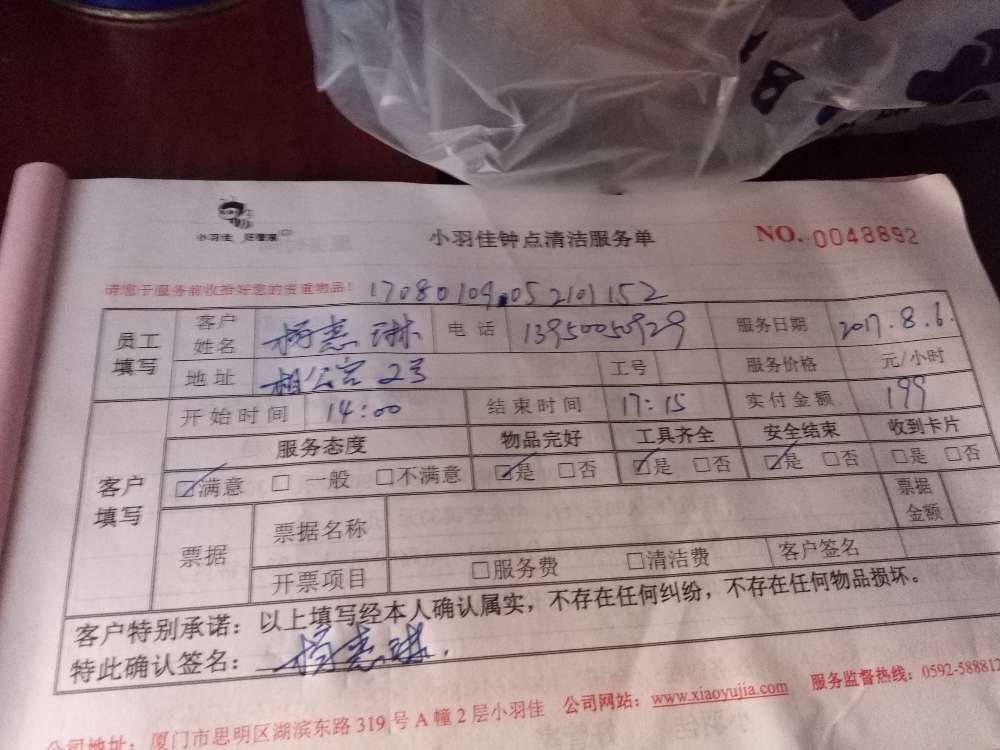 小羽佳 好管家
小羽佳钟点清洁服务单 NO. 0048892
请您于服务前收拾好您的贵重物品! 17080109052101152
员工填写 客户姓名 杨惠琳 电话 13950050929 服务日期 2017.8.6.
地址 相公宫2号 工号 服务价格 元/小时
客户填写 开始时间 14:00 结束时间 17:15 实付金额 199
服务态度 物品完好 工具齐全 安全结束 收到卡片
☑满意 □一般 □不满意 ☑是 □否 ☑是 □否 ☑是 □否 □是 □否
票据 票据名称 票据金额
开票项目 □服务费 □清洁费 客户签名
客户特别承诺：以上填写经本人确认属实，不存在任何纠纷，不存在任何物品损坏。
特此确认签名：杨惠琳.
公司地址：厦门市思明区湖滨东路319号A幢2层小羽佳 公司网站：www.xiaoyujia.com 服务监督热线：0592-588812